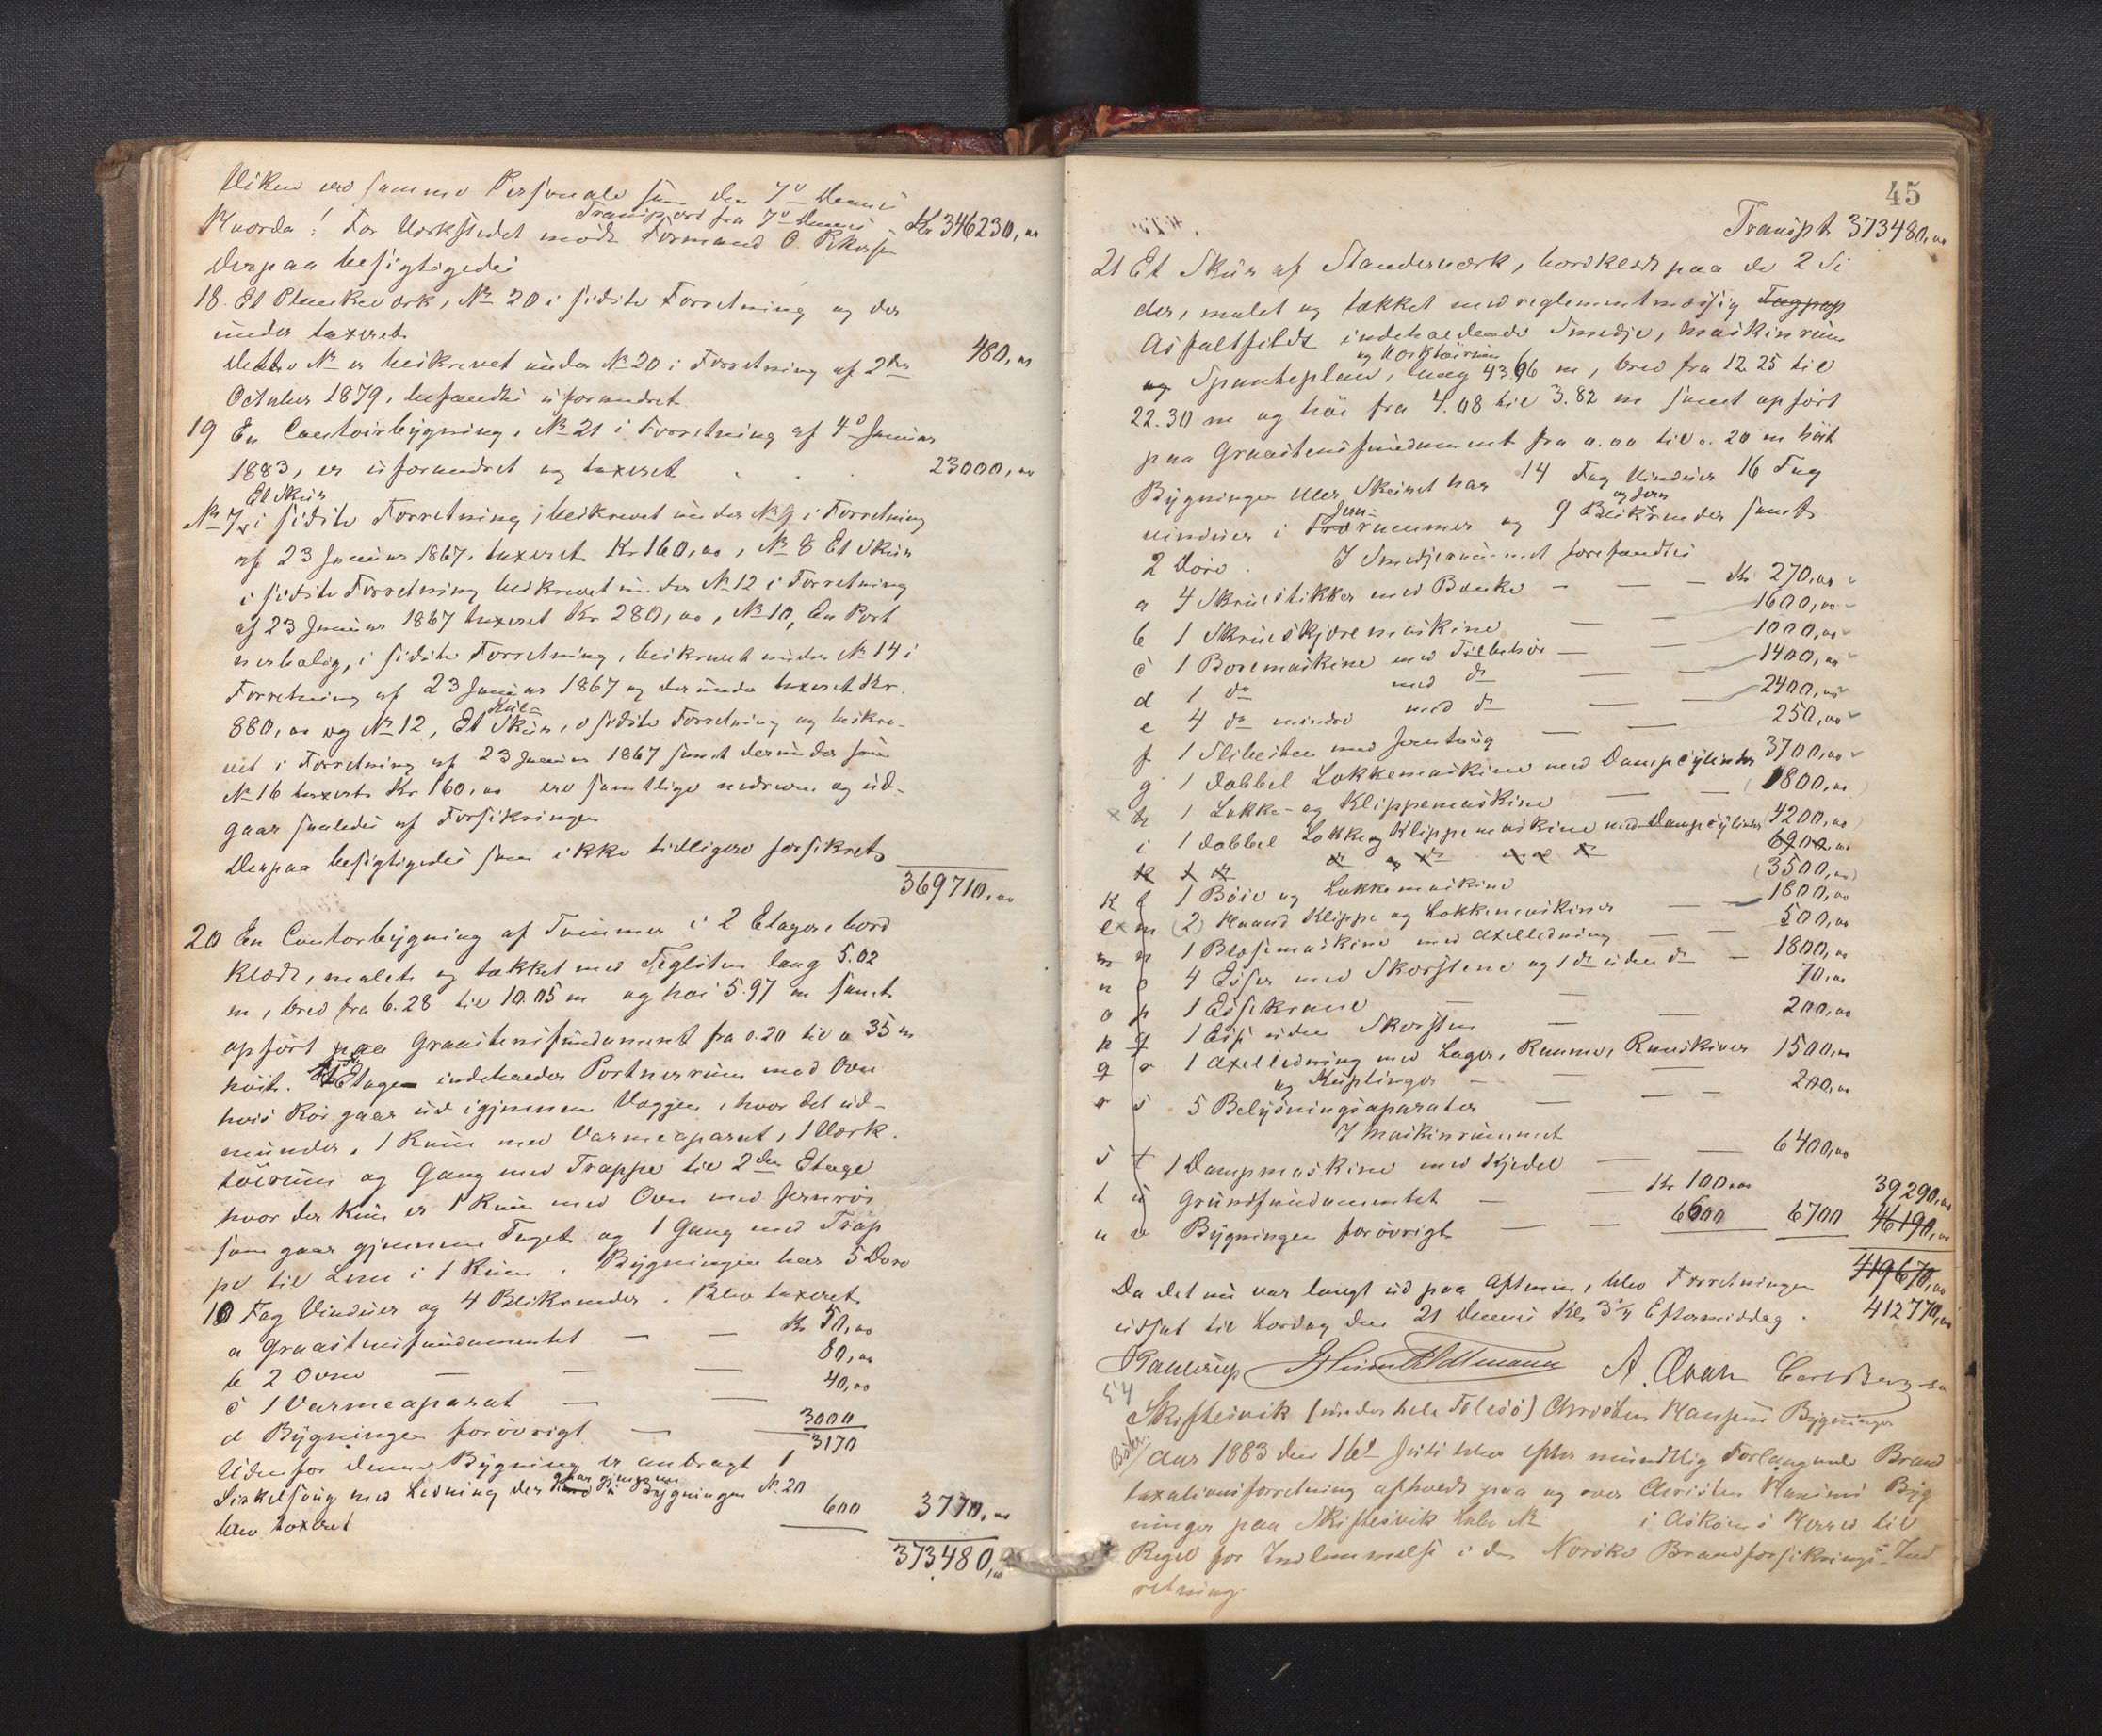 Transport fra 7de dennes Kr 346230,00
Derpaa besigtigedes
18. Et Plankeværk, No 20 i sidste Forretning og der
under taxeret 480,00
Dette No er beskrevet under No 20 i Forretning af 2den
October 1879, befandtes uforandret
19 En Contoirbygning, No 21 i Forretning af 4de Januar
1883, er uforandret og taxeret 23000,00
Et Skur
No 7 i sidste Forretning, beskrevet under No 9 i Forretning
af 23 Januar 1867, taxeret Kr 160,00, No 8 Et Skur
i sidste Forretning beskrevet under No 12 i Forretning
af 23 Januar 1867 taxeret Kr 280,00, No 10, En Port
nerbolig, i sidste Forretning, beskrevet under No 14 i
Forretning af 23 Januar 1867 og derunder taxeret Kr.
880,00 og No 12, Et Kul-Skur, i sidste Forretning og beskre-
vet i Forretning af 23 Januar 1867 samt derunder som
No 16 taxeret Kr 160,00 ere samtlige nedrevne og ud-
gaar saaledes af Forsikringen
Derpaa besigtigedes som ikke tidligere forsikret
369710,00
20 En Contorbygning af Tømmer i 2 Etager, bord
klædt, malet og takket med Teglsten lang 5.02
m, bred fra 6.28 til 10.05 m og høi 5.97 m samt
opført paa Graastensfundament fra 0.20 til 0.35 m
høit. Etagen indeholder Portnerrum med Ovn
hvis Rør gaar ud igjennem Væggen, hvor det ud-
munder, 1 Rum med Varmeaparat, 1 Værk-
tøirum og Gang med Trappe til 2den Etage
hvor der kun er 1 Rum med Ovn med Jernrør
som gaar gjennem Taget og 1 Gang med Trap
pe til Lem i 1 Rum. Bygningen har 5 Døre
10 Fag Vinduer og 4 Blikrender. Blev taxeret
a Graastensfundamentet Kr 50,00
b 2 Ovne 80,00
c 1 Varmeaparat 40,00
d Bygningen forøvrigt 3000
3170
Udenfor denne Bygning er anbragt 1
Sirkelsaug med Ledning der gaar gjennem Bygningen No 20
blev taxeret 600 3770,00
373480,00
45
Transpt 373480,00
21 Et Skur af Standerværk, bordklædt paa de 2 Si
der, malet og takket med reglementmæssig Tagpap
Asfaltfildt indeholdende Smedje, Maskinrum
og Værktøirum
og Spanteplan, lang 43.66 m, bred fra 12.25 til
22.30 m og høi fra 4.08 til 3.82 m samt opført
paa Graastensfundament fra 0.00 til 0.20 m høit
Bygningen eller Skuret har 14 Fag Vinduer 16 Fag
vinduer i Jern-rammer og 9 Blik og Jern render samt
2 Døre. I Smedjerummet forefandtes
a 4 Skruestikker med Bænke Kr 270,00
b 1 Skrueskjæremaskine 1600,00
c 1 Boremaskine med Tilbehør 1000,00
d 1 do med do 1400,00
e 4 do mindre med do 2400,00
f 1 Slibesten med Jerntrug 250,00
g 1 dobbel Lokkemaskine med Dampcylinder 3700,00
h 1 Lokke- og Klippemaskine 1800,00
i 1 dobbel Lokke og Klippemaskine med Dampcylinder 4200,00
k 1 do do og do med do 6900,00
k l 1 Bøie og Lokkemaskine 3500,00
l m 2 Haand Klippe og Lokkemaskiner 1800,00
m n 1 Blæsemaskine med Axelledning 500,00
n o 4 Esser med Skorstene og 1 do uden do 1800,00
o p 1 Essekrane 70,00
p q 1 Esse uden Skorsten 200,00
q r 1 Axelledning med Lager, Remmer, Remskiver
og Kuplinger 1500,00
r s 5 Belysningsaparater 200,00
I Maskinrummet
s t 1 Dampmaskine med Kjedel 6400,00
t u Grundfundamentet Kr 100,00 39290,00
u v Bygningen forøvrigt 6600 6700 46190,00
419670,00
Da det nu var langt ud paa Aftenen, blev Forretningen
412770,00
udsat til Lørdag den 21 dennes Kl 3 3/4 Eftermiddag.
54
Skiftesvik (under hele Tolesø) Christen Hansens Bygninger
Aar 1883 den 16de Juli blev efter mundtlig Forlangende Brand
taxationsforretning afholdt paa og over Christen Hansens Byg
ninger paa Skiftesvik Løbe No i Askøens Herred til
Regel for Indlemmelse i den Norske Brandforsikrings-Ind
retning.